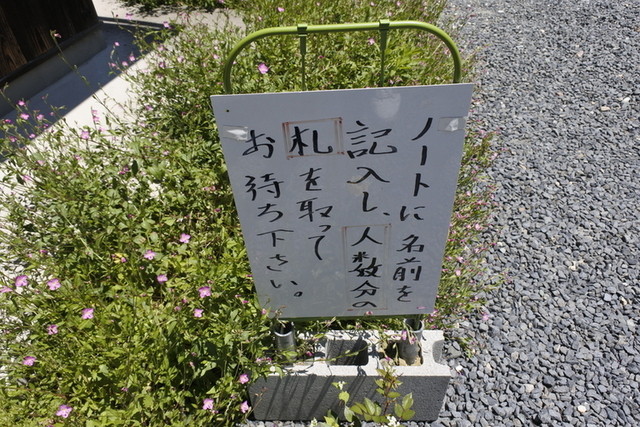 ノートに名前を
記入し、人数分の
札を取って
お待ち下さい。